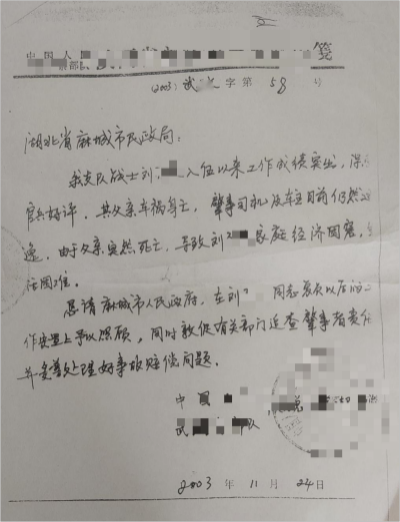 中国人 笺
(2003) 武 字第 58 号
湖北省麻城市民政局:
我支队战士刘 入伍以来工作成绩突出, 深
官兵好评. 其父亲车祸身亡, 肇事司机及车主目前仍然
逃. 由于父亲突然死亡, 导致刘 家庭经济困窘,
困难.
恳请麻城市人民政府, 在刘 同志复员以后的
作安置上予以照顾, 同时敦促有关部门追查肇事者责任
并妥善处理好事故赔偿问题.
中国
武 部队
2003 年 11 月 24 日